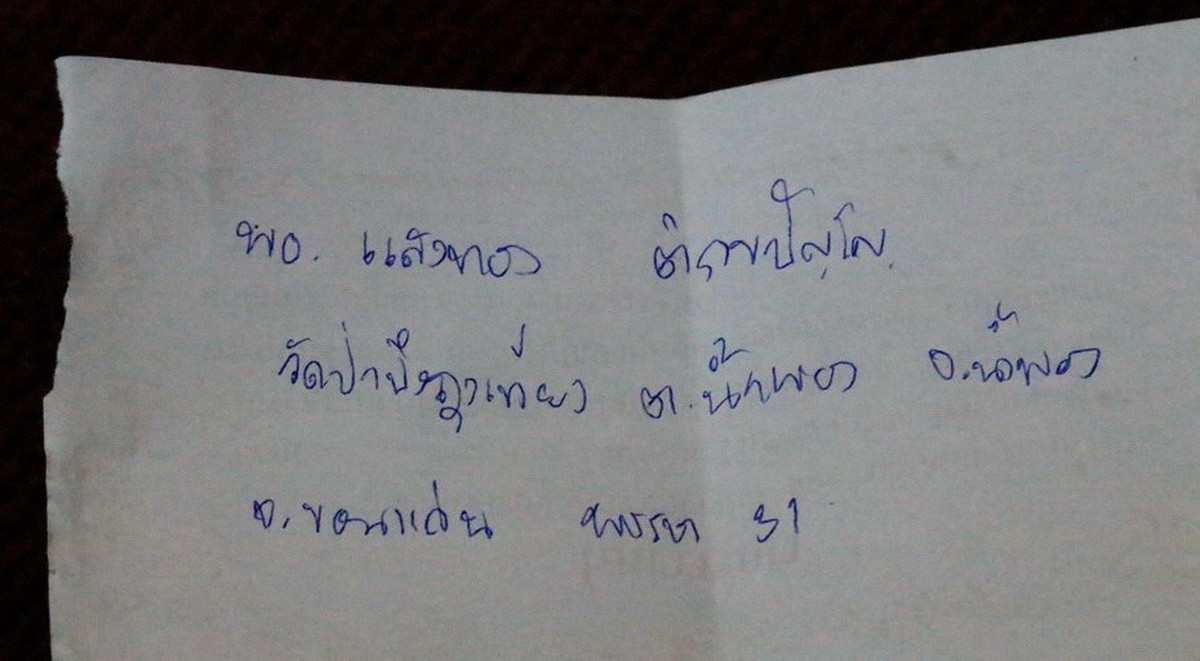 พอ. แสงทอง ติกฺขปัญโญ
วัดป่าบึงเที่ยง ต.น้ำพอง อ.น้ำพอง
จ.ขอนแก่น พรรษา 31